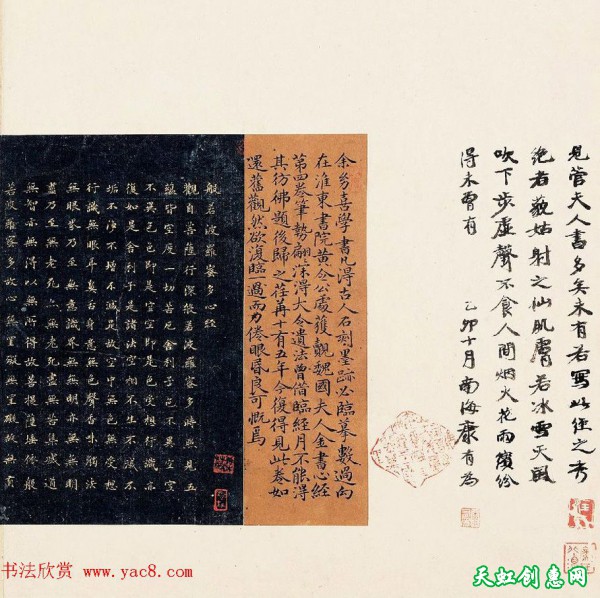 見管夫人書多矣未有若寫此經之秀
絶者藐姑射之仙肌膚若冰雪天風
吹下步虛聲不食人間烟火花雨繽紛
得未曾有
乙卯十月南海康有為
余芳喜學書凡得古人石刻墨跡必臨摹數過向
在淮東書院黃令公處獲觀魏國夫人金書心經
第四卷筆勢翩深得大令遺法曾借臨經月不能得
其彷彿題後歸之荏苒十有五年今復得見此卷如
還舊觀然欲復臨一過而力倦眼昏良可慨焉
般若波羅蜜多心經
觀自在菩薩行深般若波羅蜜多時照見五
蘊皆空度一切苦厄舍利子色不異空空
不異色色即是空空即是色受想行識亦
復如是舍利子是諸法空相不生不滅不
垢不淨不增不減是故空中無色無受想
行識無眼耳鼻舌身意無色聲香味觸法
無眼界乃至無意識界無無明亦無無明
盡乃至無老死亦無老死盡無苦集滅道
無智亦無得以無所得故菩提薩埵依般
若波羅蜜多故心無罣礙無罣礙故無有
书法欣赏 www.yac8.com
天虹创意网